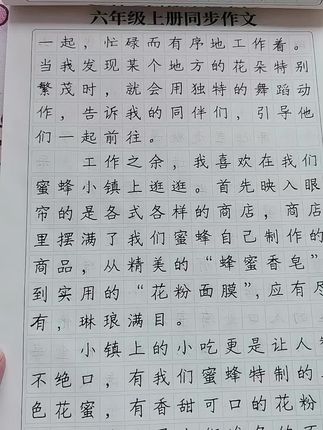 六年级上册同步作文
一起，忙碌而有序地工作着。
当我发现某个地方的花朵特别
繁茂时，就会用独特的舞蹈动
作，告诉我的同伴们，引导他
们一起前往。
工作之余，我喜欢在我们
蜜蜂小镇上逛逛。首先映入眼
帘的是各式各样的商店，商店
里摆满了我们蜜蜂自己制作的
商品，从精美的“蜂蜜香皂”
到实用的“花粉面膜”，应有尽
有，琳琅满目。
小镇上的小吃更是让人
不绝口，有我们蜜蜂特制的
色花蜜，有香甜可口的花粉